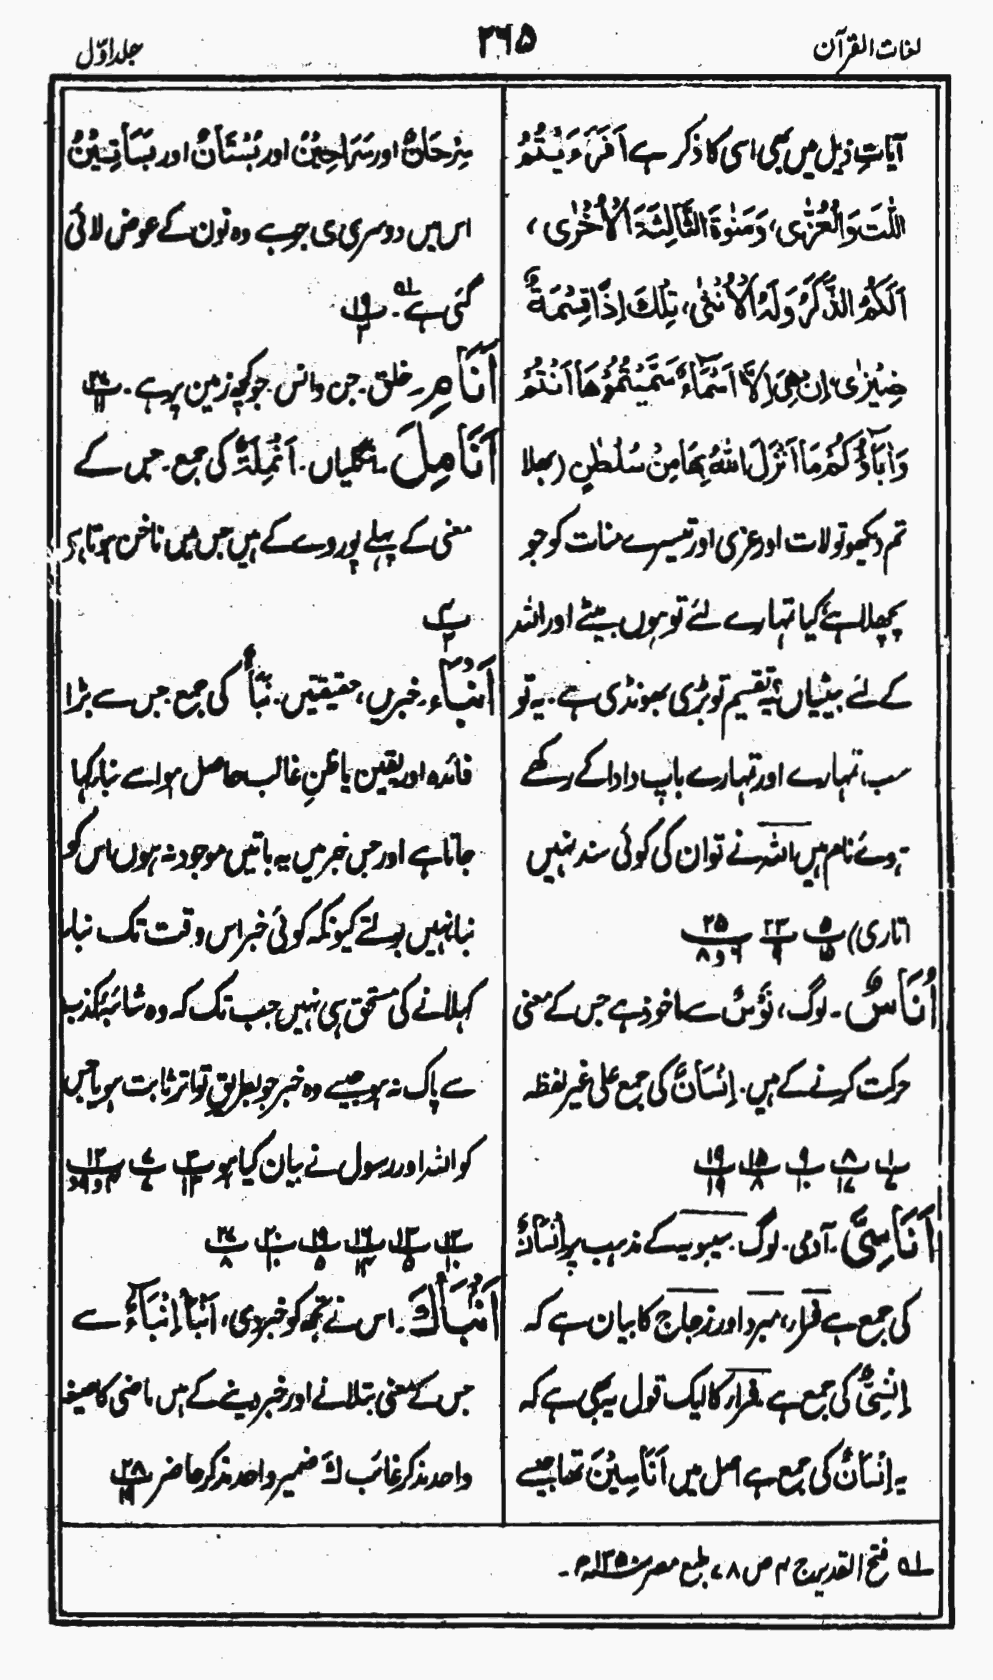 لغات القرآن
۲۶۵
جلد اوّل
آیاتِ ذیل میں بھی اسی کا ذکر ہے اَفَرَءَیْتُمُ
اللّٰتَ وَالْعُزّٰی، وَمَنٰوۃَ الثَّالِثَۃَ الْاُخْرٰی،
اَلَکُمُ الذَّکَرُ وَلَہُ الْاُنْثٰی، تِلْکَ اِذًا قِسْمَۃٌ
ضِیْزٰی، اِنْ ھِیَ اِلَّا اَسْمَآءٌ سَمَّیْتُمُوْھَا اَنْتُمْ
وَاٰبَآؤُکُمْ مَا اَنْزَلَ اللّٰہُ بِھَا مِنْ سُلْطٰنٍ (بھلا
تم دیکھو تو لات اور عزی اور تیسرے منات کو جو
پچھلا ہے کیا تمہارے لئے تو ہوں بیٹے اور اللہ
کے لئے بیٹیاں؟ یہ تقسیم تو بڑی بھونڈی ہے۔ یہ تو
سب تمہارے اور تمہارے باپ دادا کے رکھے
ہوئے نام ہیں، اللہ نے تو ان کی کوئی سند نہیں
اتاری) ۵/۱۵ ۲۳/۹ ۲۵/۶و۸
اُنَاسٌ۔ لوگ، نَوْسٌ سے ماخوذ ہے جس کے معنی
حرکت کرنے کے ہیں۔ اِنْسَانٌ کی جمع علی غیر لفظہ
۱/۷ ۸/۱۷ ۹/۱۰ ۱۵/۸ ۱۹/۱۹
اَنَاسِیَّ۔ آدمی۔ لوگ۔ سیبویہ کے مذہب پر اِنْسَانٌ
کی جمع ہے فراء، مبرد اور زجاج کا بیان ہے کہ
اِنْسِیٌّ کی جمع ہے فراء کا ایک قول یہ بھی ہے کہ
یہ اِنْسَانٌ کی جمع ہے اصل میں اَنَاسِیْنَ تھا جیسے
سِرْحَانٌ اور سَرَاحِیْنُ اور بُسْتَانٌ اور بَسَاتِیْنُ
اس میں دوسری ی جو ہے وہ نون کے عوض لائی
گئی ہے۔ لہ ۱۹/۳
اَنَامِ۔ خلق۔ جن وانس۔ جو کچھ زمین پر ہے۔ ۲۷/۱۱
اَنَامِلَ۔ انگلیاں۔ اَنْمِلَۃٌ کی جمع۔ جس کے
معنی کے پہلے پوروے کے ہیں جس میں ناخن ہوتا ہے
۴/۳
اَنْبَآءِ۔ خبریں، حقیقتیں۔ نَبَأٌ کی جمع۔ جس سے بڑا
فائدہ اور یقین یا ظنِ غالب حاصل ہو اسے نبأ کہا
جاتا ہے اور جس خبر میں یہ باتیں موجود نہ ہوں اس کو
نبأ نہیں بولتے کیونکہ کوئی خبر اس وقت تک نبأ
کہلانے کی مستحق ہی نہیں جب تک کہ وہ شائبۂ کذب
سے پاک نہ ہو جیسے وہ خبر جو بطریقِ تواتر ثابت ہو یا جس
کو اللہ اور رسول نے بیان کیا ہو ۳/۱۳ ۷/۷ ۱۲/۴و۹و
۱۳/۱۰ ۱۳/۵ ۱۶/۱۴ ۱۹/۵ ۲۰/۱۰ ۲۷/۸
اَنْۢبَاَكَ۔ اس نے تجھ کو خبر دی، اَنْبَأَ اِنْبَاءٌ سے
جس کے معنی بتلانے اور خبر دینے کے ہیں ماضی کا صیغہ
واحد مذکر غائب كَ ضمیر واحد مذکر حاضر ۲۸/۱۹
لہ فتح القدیر ج ۴ ص ۷۸، طبع مصر سنہ ۱۳۵۰ھ۔